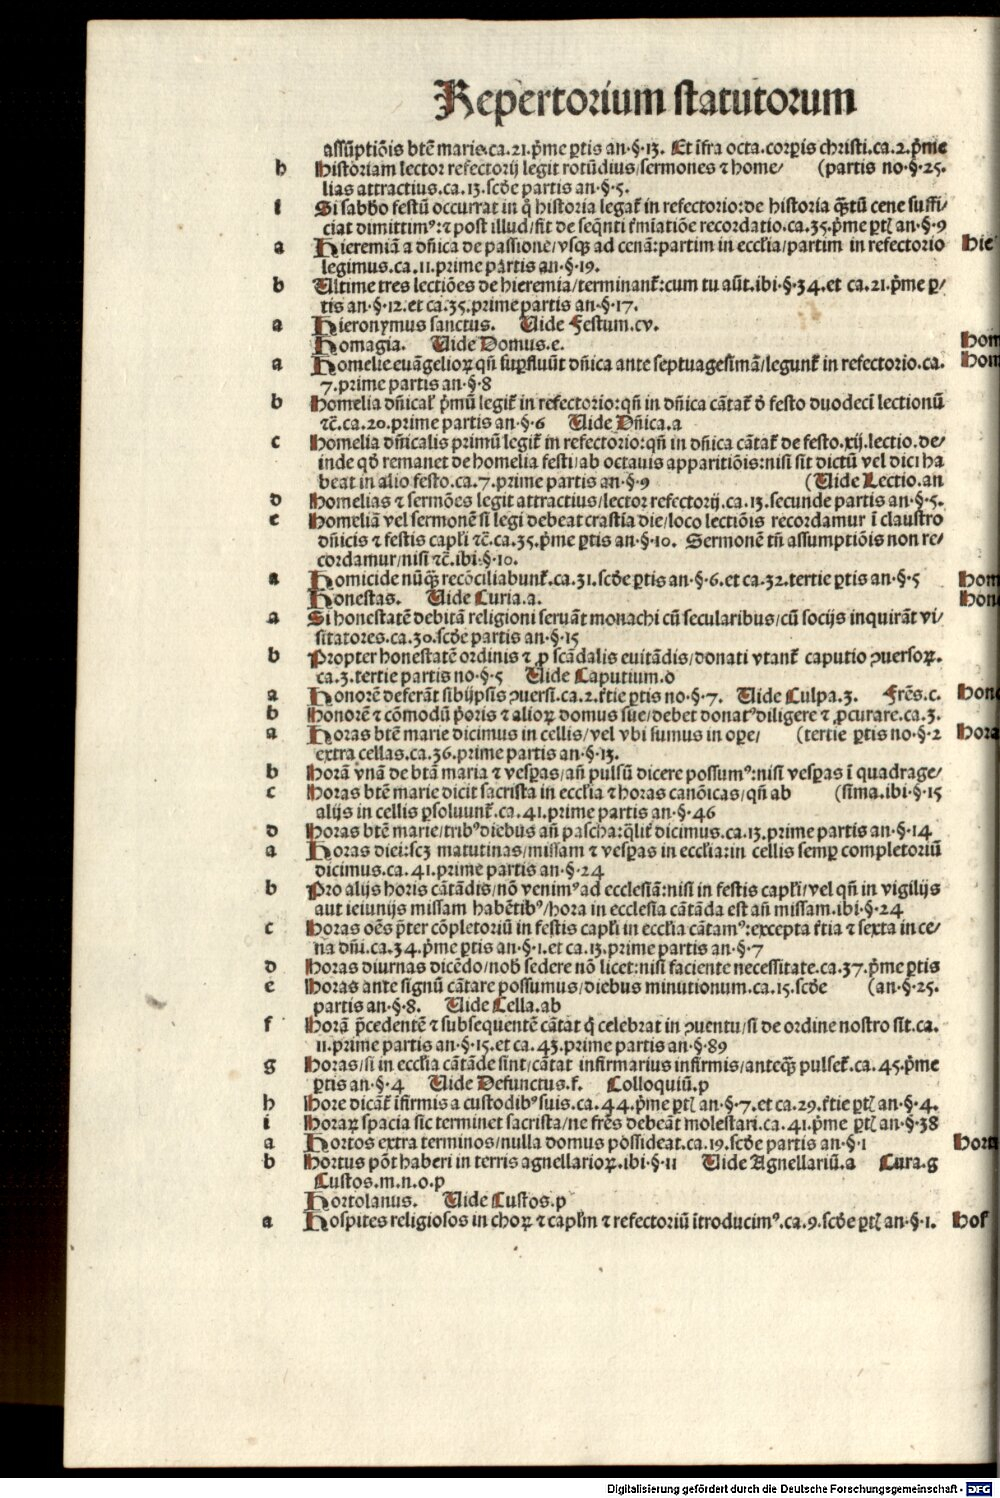 Repertorium statutorum
assūptiōis btē marie.ca.21.p̄me ꝑtis an·§·13. Et īfra octa.corꝑis christi.ca.2.p̄me
h Historiam lector refectorij legit rotūdius/sermones ⁊ home/ (partis no·§·25.
lias attractius.ca.13.scd̄e partis an·§·5.
i Si sabbo festū occurrat in q̄ historia legat̄ in refectorio:de historia q̄ꝫtū cene suffi/
ciat dimittimꝰ:⁊ post illud/fit de seq̄nti t̄miatiōe recordatio.ca.35.p̄me ꝑtꝭ an·§·9
a Hieremiā a dn̄ica de passione/vsqꝫ ad cenā:partim in eccl̄ia/partim in refectorio hie
legimus.ca.11.prime partis an·§·19.
b Ultime tres lectiōes de hieremia/terminant̄:cum tu aūt.ibi·§·34.et ca.21.p̄me ꝑ/
tis an·§·12.et ca.35.prime partis an·§·17.
a Hieronymus sanctus. Uide Festum.cv.
Homagia. Uide Domus.e. hom
a Homelie euāgelioꝝ qn̄ suꝑfluūt dn̄ica ante septuagesimā/legunt̄ in refectorio.ca. hom
7.prime partis an·§·8
b Homelia dn̄ical' p̄mū legit̄ in refectorio:qn̄ in dn̄ica cātat̄ d̄ festo duodeci lectionū
⁊c̄.ca.20.prime partis an·§·6 Uide Dn̄ica.a
c Homelia dn̄icalis primū legit̄ in refectorio:qn̄ in dn̄ica cātat̄ de festo.xij.lectio.de/
inde qd̄ remanet de homelia festi/ab octauis apparitiōis:nisi sit dictū vel dici ha
beat in alio festo.ca.7.prime partis an·§·9 (Uide Lectio.an
d Homelias ⁊ sermōes legit attractius/lector refectorij.ca.13.secunde partis an·§·5.
e Homeliā vel sermonē si legi debeat crastia die/loco lectiōis recordamur ī claustro
dn̄icis ⁊ festis capl'i ⁊c̄.ca.35.p̄me ꝑtis an·§·10. Sermonē tn̄ assumptiōis non re/
cordamur/nisi ⁊c̄.ibi·§·10.
a Homicide nūq̄ꝫ recōciliabunt̄.ca.31.scd̄e ꝑtis an·§·6.et ca.32.tertie ꝑtis an·§·5 hom
Honestas. Uide Curia.a. hone
a Si honestatē debitā religioni seruāt monachi cū secularibus/cū socijs inquirāt vi/
sitatores.ca.30.scd̄e partis an·§·15
b Propter honestatē ordinis ⁊ ꝓ scādalis euitādis/donati vtant̄ caputio ꝯuersoꝝ.
ca.3.tertie partis no·§·5 Uide Caputium.d
a Honorē deferāt sibijpsis ꝯuersi.ca.2.t̄tie ꝑtis no·§·7. Uide Culpa.3. Frēs.c. hono
b Honorē ⁊ cōmodū p̄oris ⁊ alioꝝ domus sue/debet donatꝰ diligere ⁊ ꝓcurare.ca.3.
a Horas btē marie dicimus in cellis/vel vbi sumus in oꝑe/ (tertie ꝑtis no·§·2 hora
extra cellas.ca.36.prime partis an·§·13.
b Horā vnā de btā maria ⁊ vesꝑas/an̄ pulsū dicere possumꝰ:nisi vesꝑas ī quadrage/
c Horas btē marie dicit sacrista in eccl̄ia ⁊ horas canōicas/qn̄ ab (sīma.ibi·§·15
alijs in cellis ꝑsoluunt̄.ca.41.prime partis an·§·46
d Horas btē marie/tribꝰ diebus an̄ pascha:q̄lit̄ dicimus.ca.13.prime partis an·§·14
a Horas diei:scꝫ matutinas/missam ⁊ vesꝑas in eccl̄ia:in cellis semꝑ completoriū
dicimus.ca.41.prime partis an·§·24
b Pro alijs horis cātādis/nō venimꝰ ad ecclesiā:nisi in festis capl'i/vel qn̄ in vigilijs
aut ieiunijs missam habētibꝰ/hora in ecclesia cātāda est an̄ missam.ibi·§·24
c Horas oēs p̄ter cōpletoriū in festis capl'i in eccl̄ia cātamꝰ:excepta t̄tia ⁊ sexta in ce/
na dn̄i.ca.34.p̄me ꝑtis an·§·1.et ca.13.prime partis an·§·7
d Horas diurnas dicēdo/nob̄ sedere nō licet:nisi faciente necessitate.ca.37.p̄me ꝑtis
e Horas ante signū cātare possumus/diebus minutionum.ca.15.scd̄e (an·§·25.
partis an·§·8. Uide Cella.ab
f Horā p̄cedentē ⁊ subsequentē cātat q̄ celebrat in ꝯuentu/si de ordine nostro sit.ca.
11.prime partis an·§·15.et ca.43.prime partis an·§·89
g Horas/si in eccl̄ia cātāde sint/cātat infirmarius infirmis/anteq̄ꝫ pulset̄.ca.45.p̄me
ꝑtis an·§·4 Uide Defunctus.f. Colloquiū.p
h Hore dicāt̄ īfirmis a custodibꝰ suis.ca.44.p̄me ꝑtꝭ an·§·7.et ca.29.t̄tie ꝑtꝭ an·§·4.
i Horaꝝ spacia sic terminet sacrista/ne frēs debeāt molestari.ca.41.p̄me ꝑtꝭ an·§·38
a Hortos extra terminos/nulla domus possideat.ca.19.scd̄e partis an·§·1 horti
b Hortus pōt haberi in terris agnellarioꝝ.ibi·§·11 Uide Agnellariū.a Cura.g
Custos.m.n.o.p
Hortolanus. Uide Custos.p
a Hospites religiosos in choꝝ ⁊ capl'm ⁊ refectoriū ītroducimꝰ.ca.9.scd̄e ꝑtꝭ an·§·1. hos
Digitalisierung gefördert durch die Deutsche Forschungsgemeinschaft · DFG